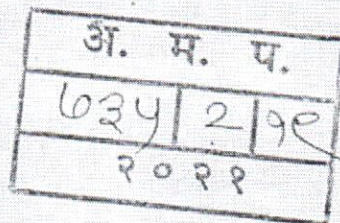 अ. म. प.
७३५ | 2 | १९
२०२१